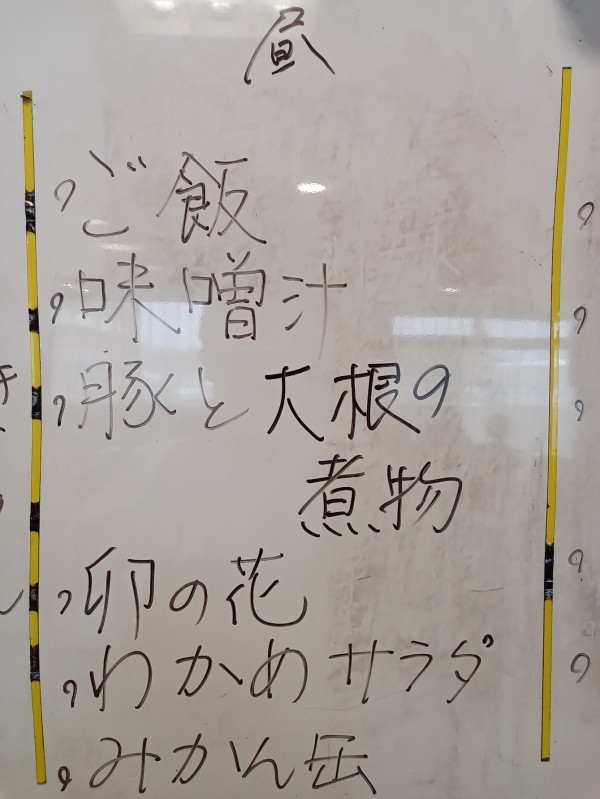 昼
,ご飯
,味噌汁
,豚と大根の
煮物
,卯の花
,わかめサラダ
,みかん缶